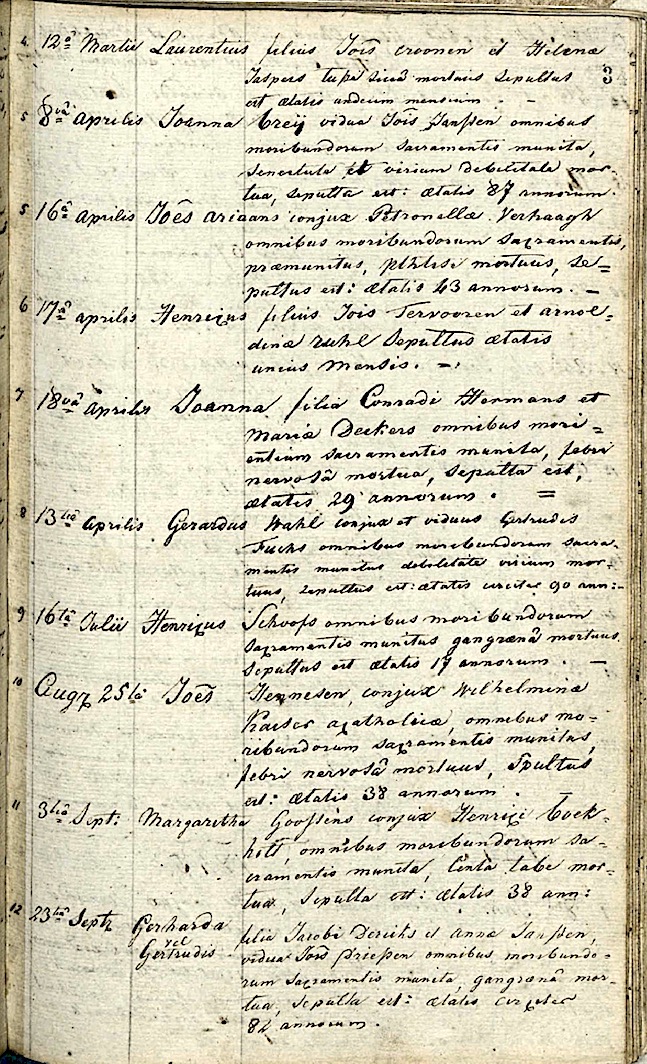 3
4 12â Martii Laurentius filius Jois Croonen et Helenæ
Jaspers tussi sicca mortuus sepultus
est ætatis undecim mensium. -
5 8vâ aprilis Joanna Creij vidua Jois Janssen omnibus
moribundorum sacramentis munita,
senectute et virium debilitate mor-
tua, sepulta est: ætatis 87 annorum.
5 16â aprilis Joês ariaans conjux Petronellæ Verhaagh
omnibus moribundorum sacramentis,
præmunitus, phthisi mortuus, se=
pultus est: ætatis 43 annorum. -
6 17â aprilis Henricus filius Jois Tervooren et arnol=
dinæ sepultus ætatis
unius mensis. -
7 18vâ aprilis Joanna filia Conradi Hermans et
Mariæ Deckers omnibus mori=
entium sacramentis munita, febri
nervosâ mortua, sepulta est,
ætatis 29 annorum. =
8 13tiâ aprilis Gerardus Wahl conjux et viduus Gertrudis
Fuchs omnibus moribundorum sacra-
mentis munitus debilitate virium mor-
tuus, sepultus est: ætatis circiter 90 ann:-
9 16tâ Julii Henricus Schoofs omnibus moribundorum
sacramentis munitus gangrænâ mortuus,
sepultus est ætatis 17 annorum. -
10 25tâ Joês Hennesen, conjux Wilhelminæ
Kaiser acatholicæ, omnibus mo=
ribundorum sacramentis munitus,
febri nervosâ mortuus, spultus
est: ætatis 38 annorum. -
11 3tiâ Sept: Margaretha Goossens conjux Henrici Cock-
hott, omnibus moribundorum sa-
cramentis munita, lenta tabe mor-
tua, sepulta est: ætatis 38 ann:
12 23tiâ Gerharda vel Gertrudis filia Jacobi Dericks et annæ Janssen,
vidua Jois Driessen omnibus moribundo=
rum sacramentis munita, gangrænâ mor-
tua, sepulta est: ætatis circiter
82 annorum.